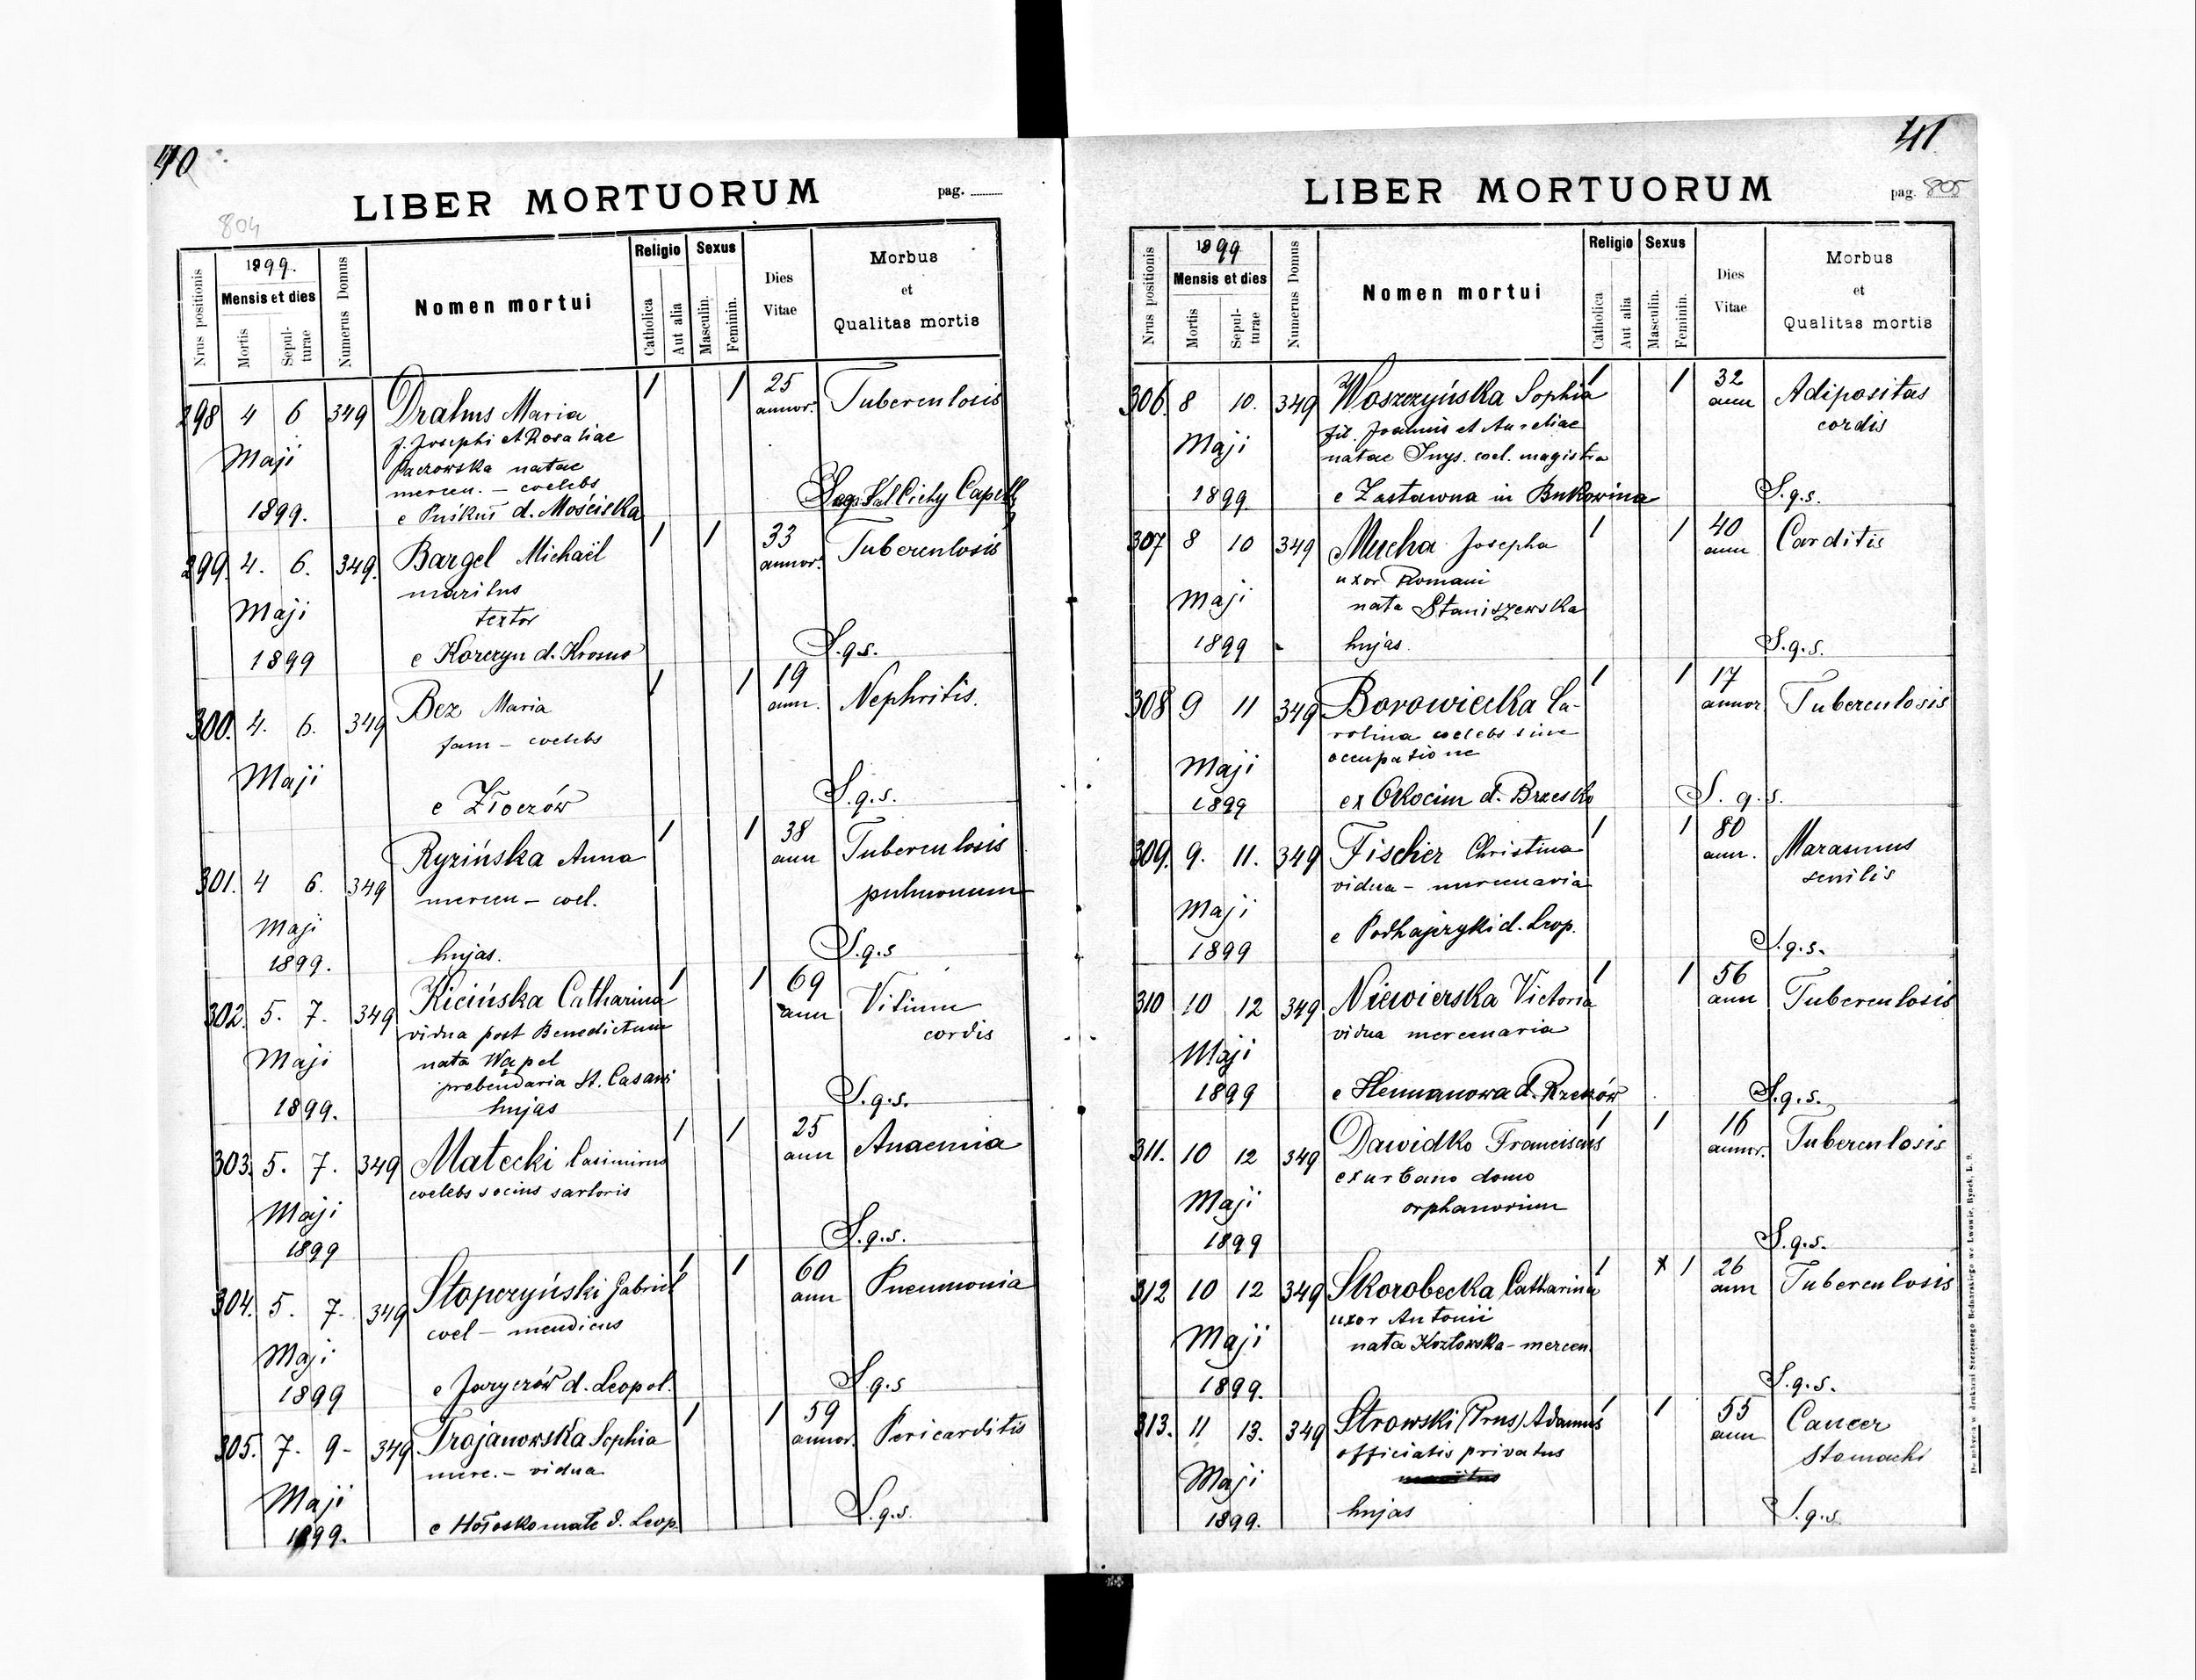 40
LIBER MORTUORUM
pag.
804
Nrus positionis
1899.
Mensis et dies
Mortis
Sepulturae
Numerus Domus
Nomen mortui
Religio
Catholica
Aut alia
Sexus
Masculin.
Feminin.
Dies
Vitae
Morbus
et
Qualitas mortis
298 4 6 349 Dralus Maria 1 1 25 Tuberculosis
annor.
f. Josephi et Rosaliae
Maji Paczowska natae
mercen. - coelebs
Cichy Capell
1899. e Puśkus d. Mościska
299. 4. 6. 349. Bargel Michaël 1 1 33 Tuberculosis
annor.
maritus
Maji textor
1899 e Korczyn d. Krosno S.q.s.
300. 4. 6. 349 Bez Maria 1 1 19 Nephritis.
ann.
fam - coelebs
Maji
e Złoczów S.q.s.
301. 4 6. 349 Ryzińska Anna 1 1 38 Tuberculosis
ann
mercen - coel. pulmonum
Maji
1899. hujas. S.q.s
302. 5. 7. 349 Kicińska Catharina 1 1 69 Vitium
ann
vidua post Benedictum cordis
Maji nata Wąpel
prebendaria St. Lasari
1899. hujas S.q.s.
303. 5. 7. 349 Małecki Casimirus 1 1 25 Anaemia
ann
coelebs socius sartoris
Maji
1899 S.q.s.
304. 5. 7. 349 Stopczyński Gabriel 1 1 60 Pneumonia
ann
coel - mendicus
Maji
1899 e Jaryczów d. Leopol. S.q.s
305. 7. 9- 349 Trojanowska Sophia 1 1 59 Pericarditis
annor.
merc. - vidua
Maji
1899. e Hołosko małe d. Leop. S.q.s.
41
LIBER MORTUORUM
pag. 805
Nrus positionis
1899
Mensis et dies
Mortis
Sepulturae
Numerus Domus
Nomen mortui
Religio
Catholica
Aut alia
Sexus
Masculin.
Feminin.
Dies
Vitae
Morbus
et
Qualitas mortis
306. 8 10. 349 Woszczyńska Sophia 1 1 32 Adipositas
ann
fil. Joannis et Aureliae cordis
Maji natae Inys. coel. magistra
1899. e Zastawna in Bukowina S.q.s.
307 8 10 349 Mucha Josepha 1 1 40 Carditis
ann
uxor Romani
Maji nata Staniszewska
1899 hujas. S.q.s.
308 9 11 349 Borowiecka Ca- 1 1 17 Tuberculosis
annor.
rolina coelebs sine
Maji occupatione
1899 ex Okocim d. Brzesko S.q.s.
309. 9. 11. 349 Fischer Christina 1 1 80 Marasmus
ann.
vidua - mercenaria senilis
Maji
1899 e Podhajczyki d. Leop. S.q.s.
310 10 12 349 Niewierska Victoria 1 1 56 Tuberculosis
ann
vidua mercenaria
Maji
1899 e Hermanowa d. Rzeszów S.q.s.
311. 10 12 349 Dawidko Franciscus 1 1 16 Tuberculosis
annor.
ex urbano domo
Maji orphanorum
1899 S.q.s.
312 10 12 349 Skorobecka Catharina 1 x 1 26 Tuberculosis
ann
uxor Antonii
Maji nata Kozłowska - mercen.
1899. S.q.s.
313. 11 13. 349 Strowski (Prus) Adamus 1 1 55 Cancer
ann
officialis privatus stomachi
Maji maritus
1899. hujas S.q.s.
Do nabycia w drukarni Szczęsnego Bednarskiego we Lwowie, Rynek, L. 9.